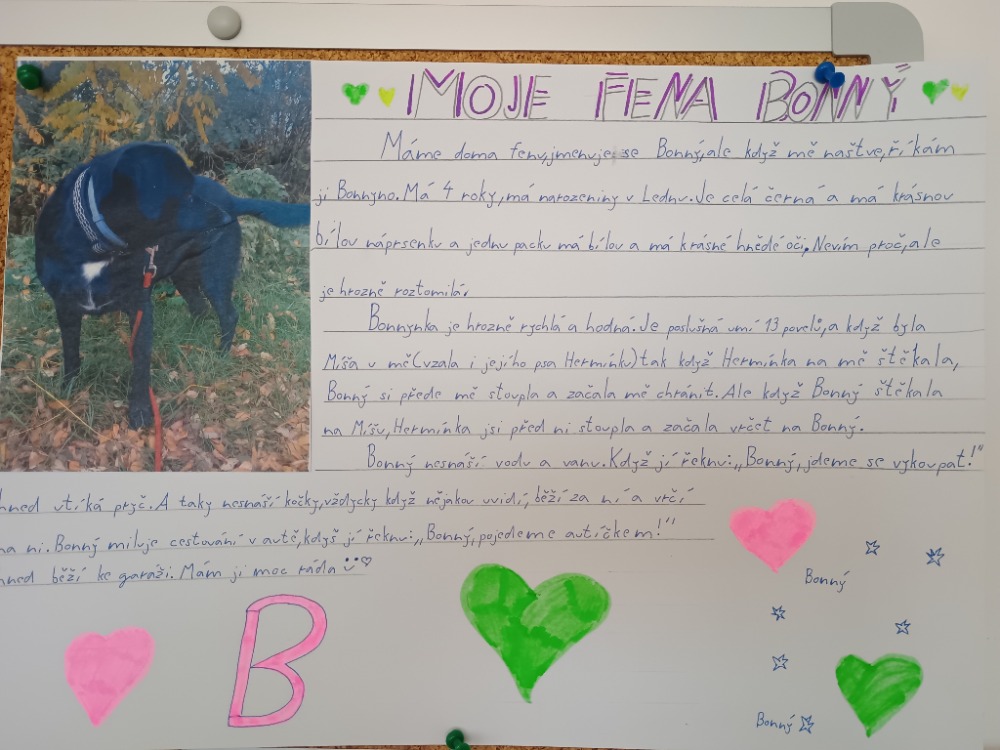 MOJE FENA BONNÝ
Máme doma fenu,jmenuje se Bonný,ale když mě naštve,říkám
jí Bonnyno. Má 4 roky,má narozeniny v Lednu. Je celá černá a má krásnou
bílou náprsenku a jednu packu má bílou a má krásné hnědé oči. Nevím proč,ale
je hrozně roztomilá.
Bonnynka je hrozně rychlá a hodná. Je poslušná umí 13 povelů,a když byla
Míša u mě(vzala i jejího psa Hermínku)tak když Hermínka na mě štěkala,
Bonný si přede mě stoupla a začala mě chránit. Ale když Bonný štěkala
na Míšu,Hermínka jsi před ni stoupla a začala vrčet na Bonný.
Bonný nesnáší vodu a vanu. Když jí řeknu:„Bonný,jdeme se vykoupat!"
hned utíká pryč. A taky nesnáší kočky,vždycky když nějakou uvidí,běží za ní a vrčí
na ni. Bonný miluje cestování v autě,kdyš jí řeknu:„Bonný,pojedeme autíčkem!"
hned běží ke garáži. Mám ji moc ráda
Bonný
B
Bonný